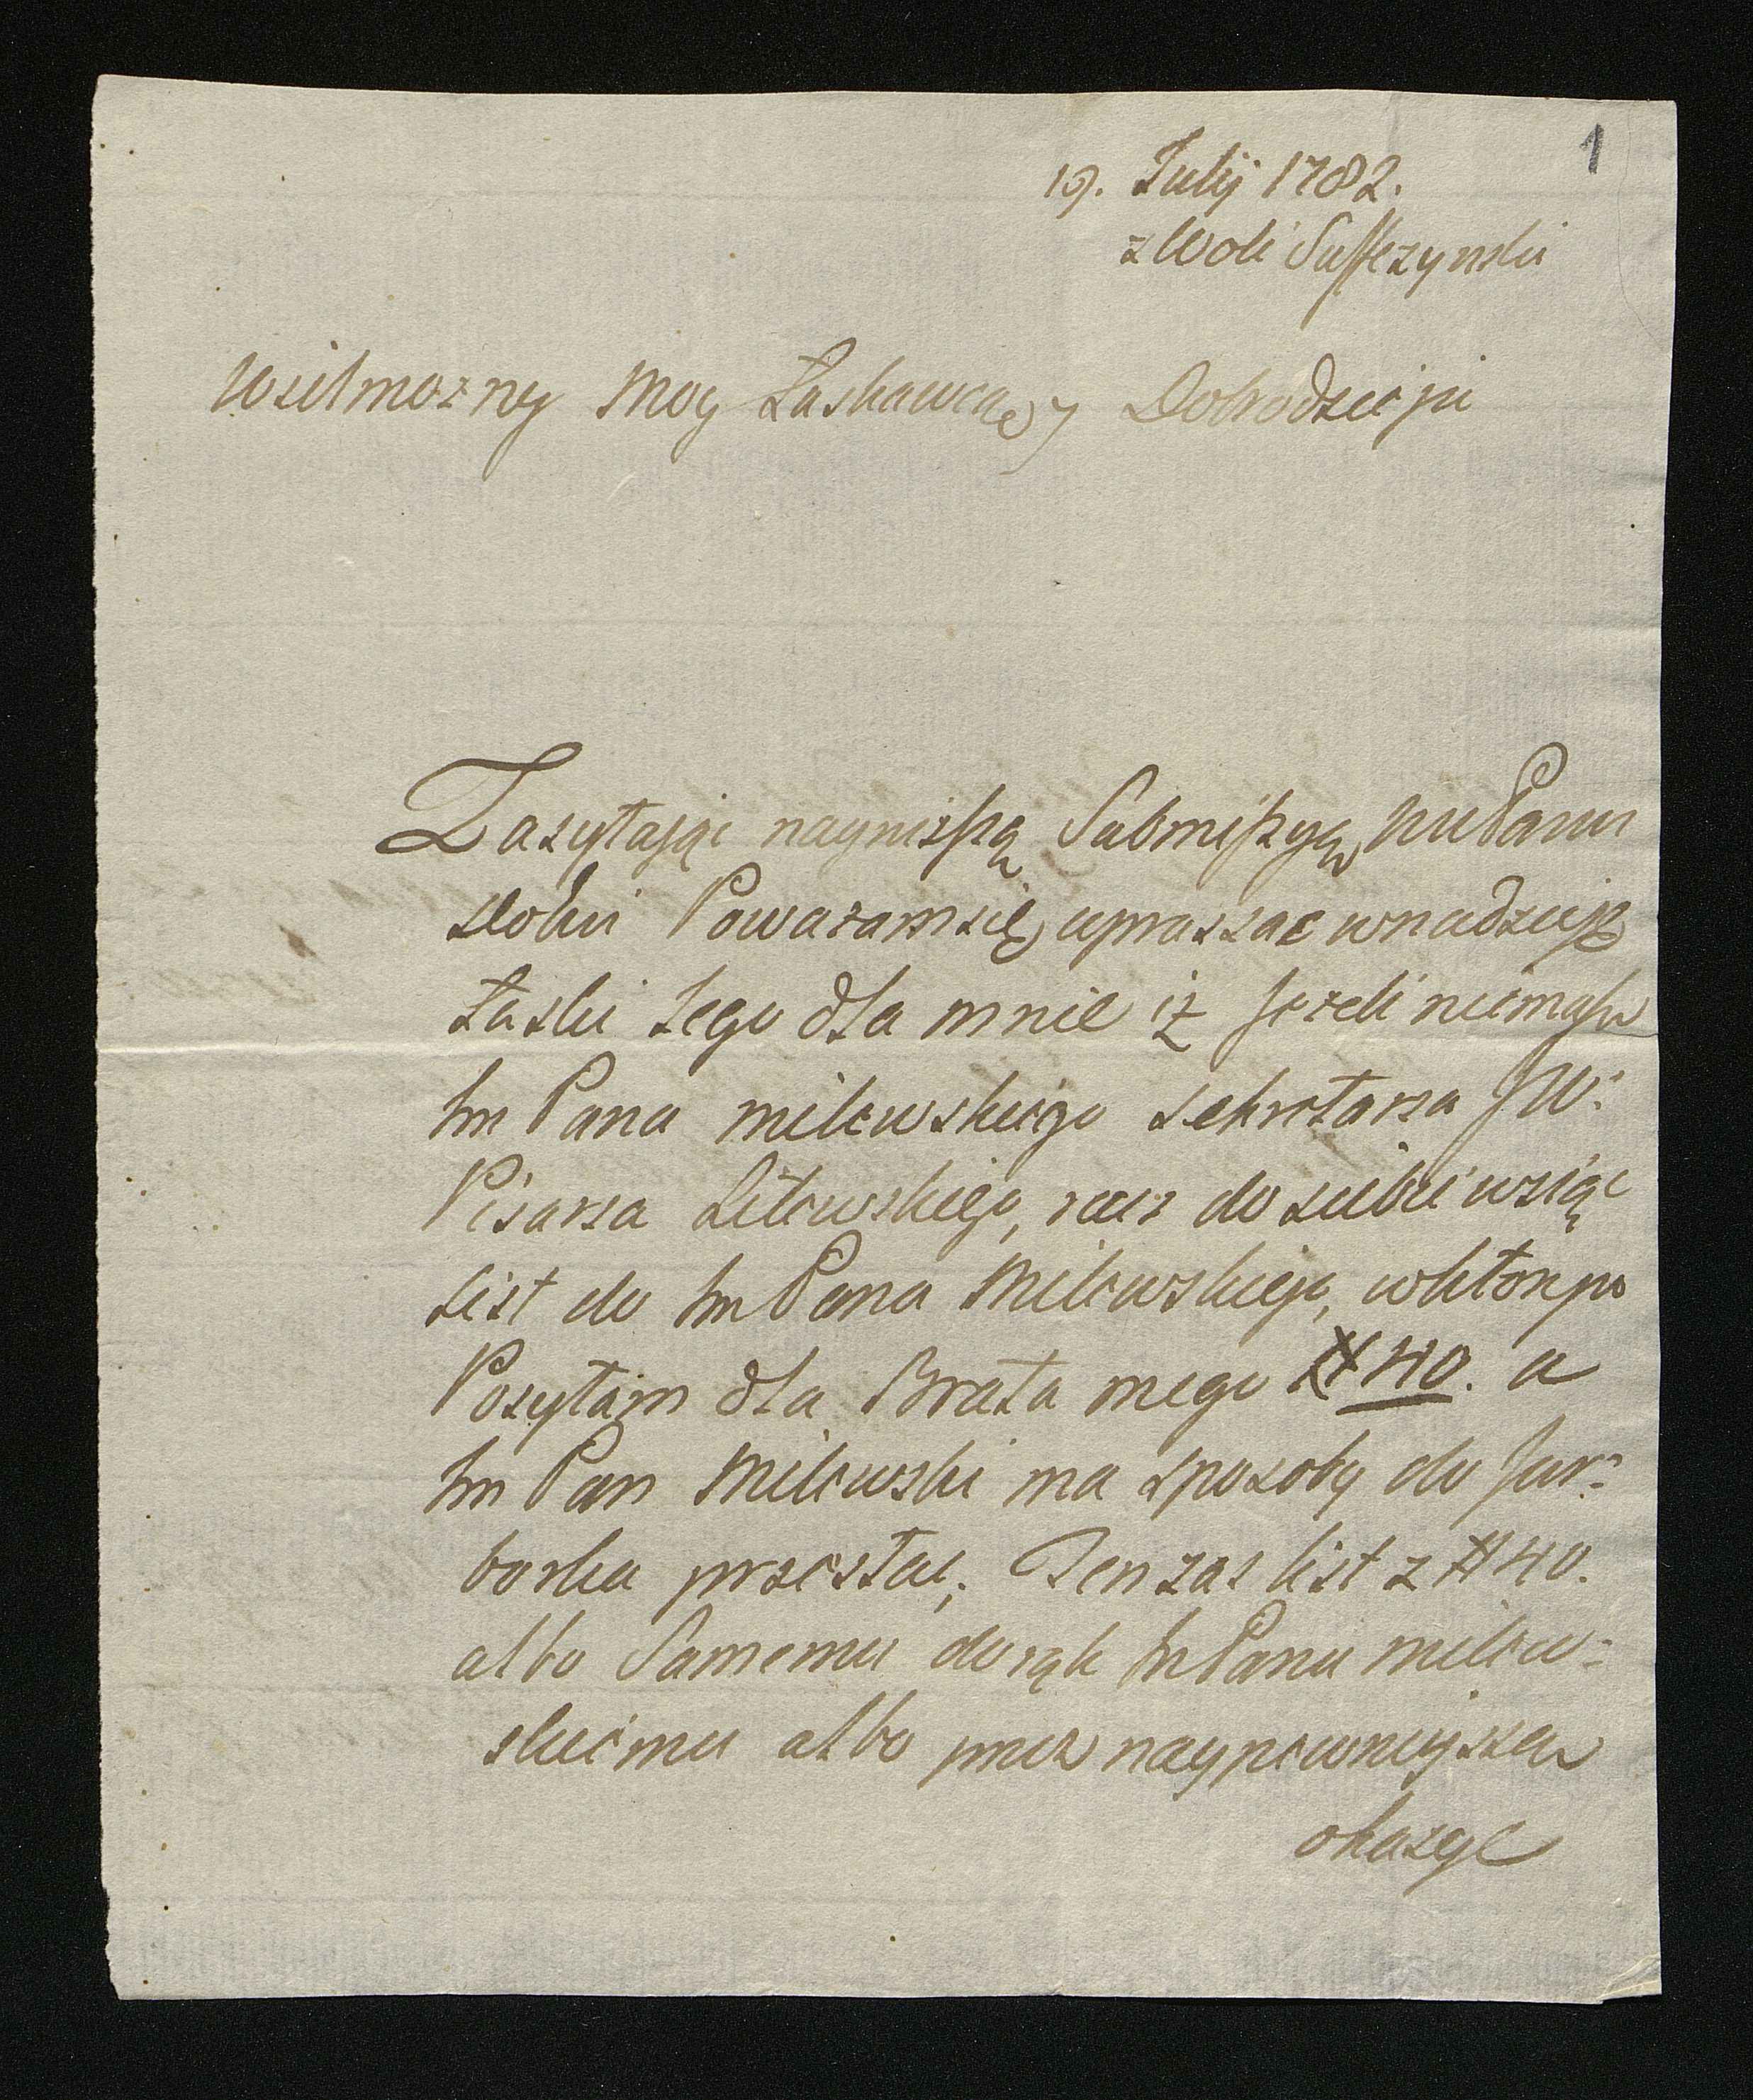 1
19. Julij 1782.
z Woli Suffczynski
Wielmozny Moy Łaskawca y Dobrodzieju
Zasyłaiąc nayniższą Submissyą WPanu
dobri Powazam się upraszac w nadzieję
Łaski Jego dla mnie iż Jezeli niemasz
Im Pana Milewskiego Sekretarza JW:
Pisarza Litewskiego, racz do siebie wziąć
List do Im Pana Milewskiego, w ktorym
Posyłam dla Brata mego # 40. a
Im Pan Milewski ma sposoby do Jur:
borka przesłać; Ten zas list z # 40.
albo Samemu do rąk Im Panu Milew:
skiemu albo przez naypewnieyszą
okazye